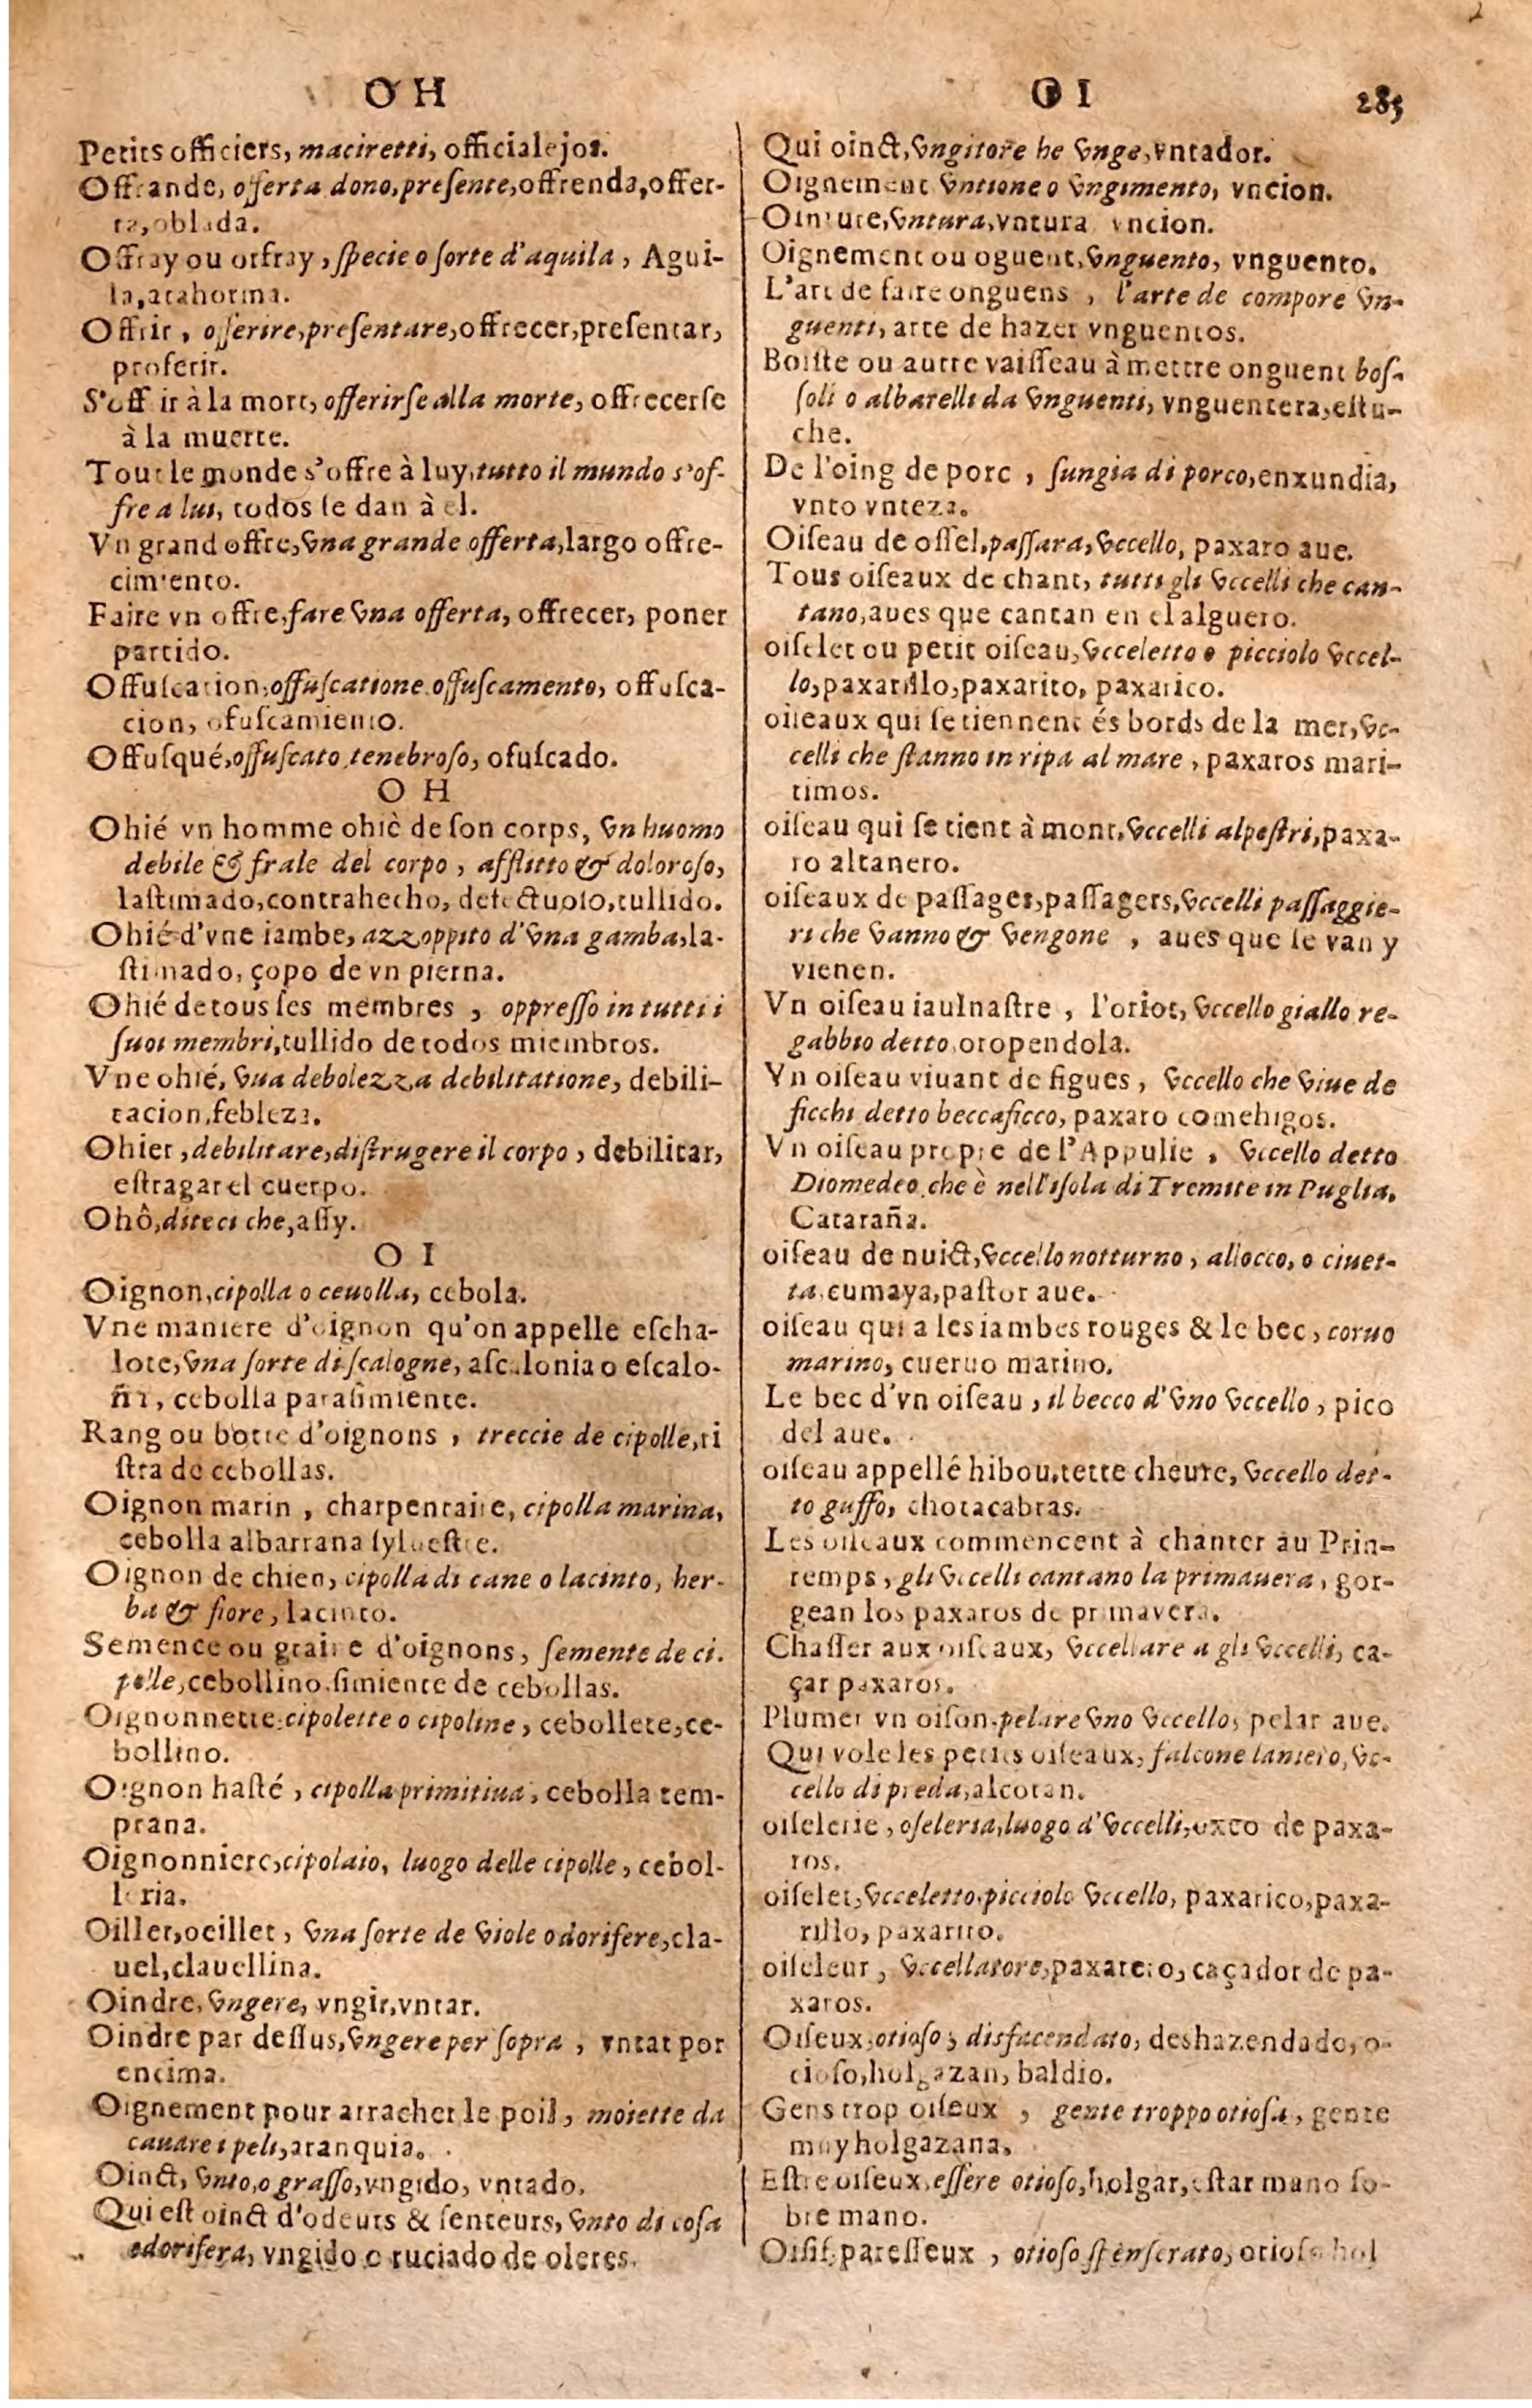 OH
Petits officiers, maciretti, officialejos.
Offrande, offerta dono, presente, offrenda, offer-
ta, oblada.
Offray ou orfray, specie o sorte d'aquila, Agui-
la, atahorma.
Offrir, offerire, presentare, offrecer, presentar,
proferir.
S'offrir à la mort, offerirse alla morte, offrecerse
à la muerte.
Tout le monde s'offre à luy, tutto il mundo s'of-
fre a lui, todos se dan à el.
Vn grand offre, vna grande offerta, largo offre-
cimiento.
Faire vn offre, fare vna offerta, offrecer, poner
partido.
Offuscation, offuscatione offuscamento, offusca-
cion, ofuscamiento.
Offusqué, offuscato, tenebroso, ofuscado.
OH
Ohié vn homme ohié de son corps, vn huomo
debile & frale del corpo, afflitto & doloroso,
lastimado, contrahecho, defectuoso, tullido.
Ohié d'vne iambe, azzoppito d'vna gamba, la-
stimado, çopo de vn pierna.
Ohié de tous ses membres, oppresso in tutti i
suoi membri, tullido de todos miembros.
Vne ohié, vna debolezza debilitatione, debili-
tacion, febleza.
Ohier, debilitare, distrugere il corpo, debilitar,
estragar el cuerpo.
Ohô, diteci che, assy.
OI
Oignon, cipolla o cevolla, cebola.
Vne maniere d'oignon qu'on appelle escha-
lote, vna sorte di scalogne, ascalonia o escalo-
ña, cebolla para simiente.
Rang ou botte d'oignons, treccie de cipolle, ri
stra de cebollas.
Oignon marin, charpentaire, cipolla marina,
cebolla albarrana syluestre.
Oignon de chien, cipolla di cane o Iacinto, her-
ba & fiore, Iacinto.
Semence ou graine d'oignons, semente de ci.
polle, cebollino, simiente de cebollas.
Oignonnette, cipolette o cipoline, cebollete, ce-
bollino.
Oignon hasté, cipolla primitiua, cebolla tem-
prana.
Oignonniere, cipolaio, luogo delle cipolle, cebol-
leria.
Oillet, oeillet, vna sorte de viole odorifere, cla-
uel, clauellina.
Oindre, vngere, vngir, vntar.
Oindre par dessus, vngere per sopra, vntat por
encima.
Oignement pour arracher le poil, moiette da
cauare i peli, aranquia.
Oinct, vnto, o grasso, vngido, vntado,
Qui est oinct d'odeurs & senteurs, vnto di cosa
odorifera, vngido o ruciado de olores.
OI 285
Qui oinct, vngitore he vnge, vntador.
Oignement vntione o vngimento, vncion.
Ointure, vntura, vntura vncion.
Oignement ou oguent, vnguento, vnguento.
L'art de faire onguens, l'arte de compore vn-
guenti, arte de hazer vnguentos.
Boiste ou autre vaisseau à mettre onguent bos-
soli o albarelli da vnguenti, vnguentera, estu-
che.
De l'oing de porc, sungia di porco, enxundia,
vnto vnteza.
Oiseau de ossel, passara, vccello, paxaro aue.
Tous oiseaux de chant, tutti gli vccelli che can-
tano, aues que cantan en el alguero.
oiselet ou petit oiseau, vcceletto o picciolo vccel-
lo, paxarillo, paxarito, paxarico.
oiseaux qui se tiennent és bords de la mer, vc-
celli che stanno in ripa al mare, paxaros mari-
timos.
oiseau qui se tient à mont, vccelli alpestri, paxa-
ro altanero.
oiseaux de passages, passagers, vccelli passaggie-
ri che vanno & vengone, aues que se van y
vienen.
Vn oiseau iaulnastre, l'oriot, vccello giallo re-
gabbio detto, oropendola.
Vn oiseau viuant de figues, vccello che viue de
ficchi detto beccaficco, paxaro comehigos.
Vn oiseau propre de l'Appulie, vccello detto
Diomedeo, che è nell'isola di Tremite in Puglia,
Cataraña.
oiseau de nuict, vccello notturno, allocco, o ciuet-
ta, cumaya, pastor aue.
oiseau qui a les iambes rouges & le bec, coruo
marino, cueruo marino.
Le bec d'vn oiseau, il becco d'vno vccello, pico
del aue.
oiseau appellé hibou, tette cheure, vccello det-
to guffo, chotacabras.
Les oiseaux commencent à chanter au Prin-
temps, gli vccelli cantano la primauera, gor-
gean los paxaros de primavera.
Chasser aux oiseaux, vccellare a gli vccelli, ca-
çar paxaros.
Plumer vn oison, pelare vno vccello, pelar aue.
Qui vole les petits oiseaux, falcone laniero, vc-
cello di preda, alcotan.
oiselerie, oseleria, luogo d'vccelli, oxeo de paxa-
ros.
oiselet, vcceletto, picciolo vccello, paxarico, paxa-
rillo, paxarito.
oiseleur, vccellatore, paxarero, caçador de pa-
xaros.
Oiseux, otioso, disfacendato, deshazendado, o-
cioso, holgazan, baldio.
Gens trop oiseux, gente troppo otiosa, gente
muy holgazana.
Estre oiseux, essere otioso, holgar, estar mano so-
bre mano.
Oisif, paresseux, otioso spenserato, otioso hol